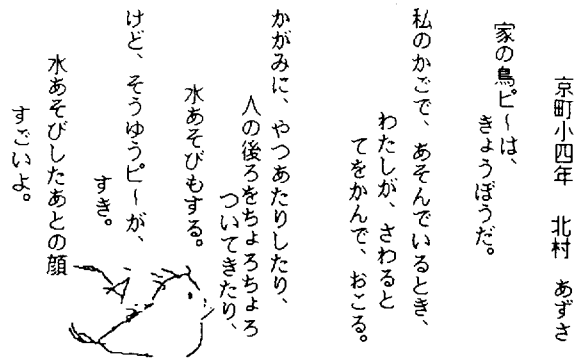 京町小四年　北村　あずさ
家の鳥ピ～は、
きょうぼうだ。
私のかごで、あそんでいるとき、
わたしが、さわると
てをかんで、おこる。
かがみに、やつあたりしたり、
人の後ろをちょろちょろ
ついてきたり、
水あそびもする。
けど、そうゆうピ～が、
すき。
水あそびしたあとの顔
すごいよ。